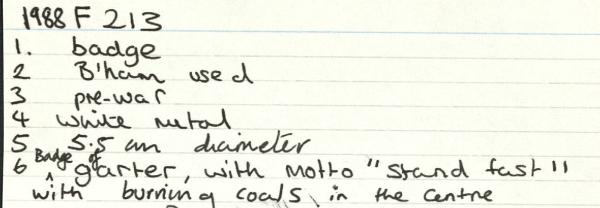 1988 F 213
1. badge
2 B'ham used
3 pre-war
4 white metal
5 5.5 cm diameter
6 Badge of garter, with motto "Stand fast"
with burning coals in the centre